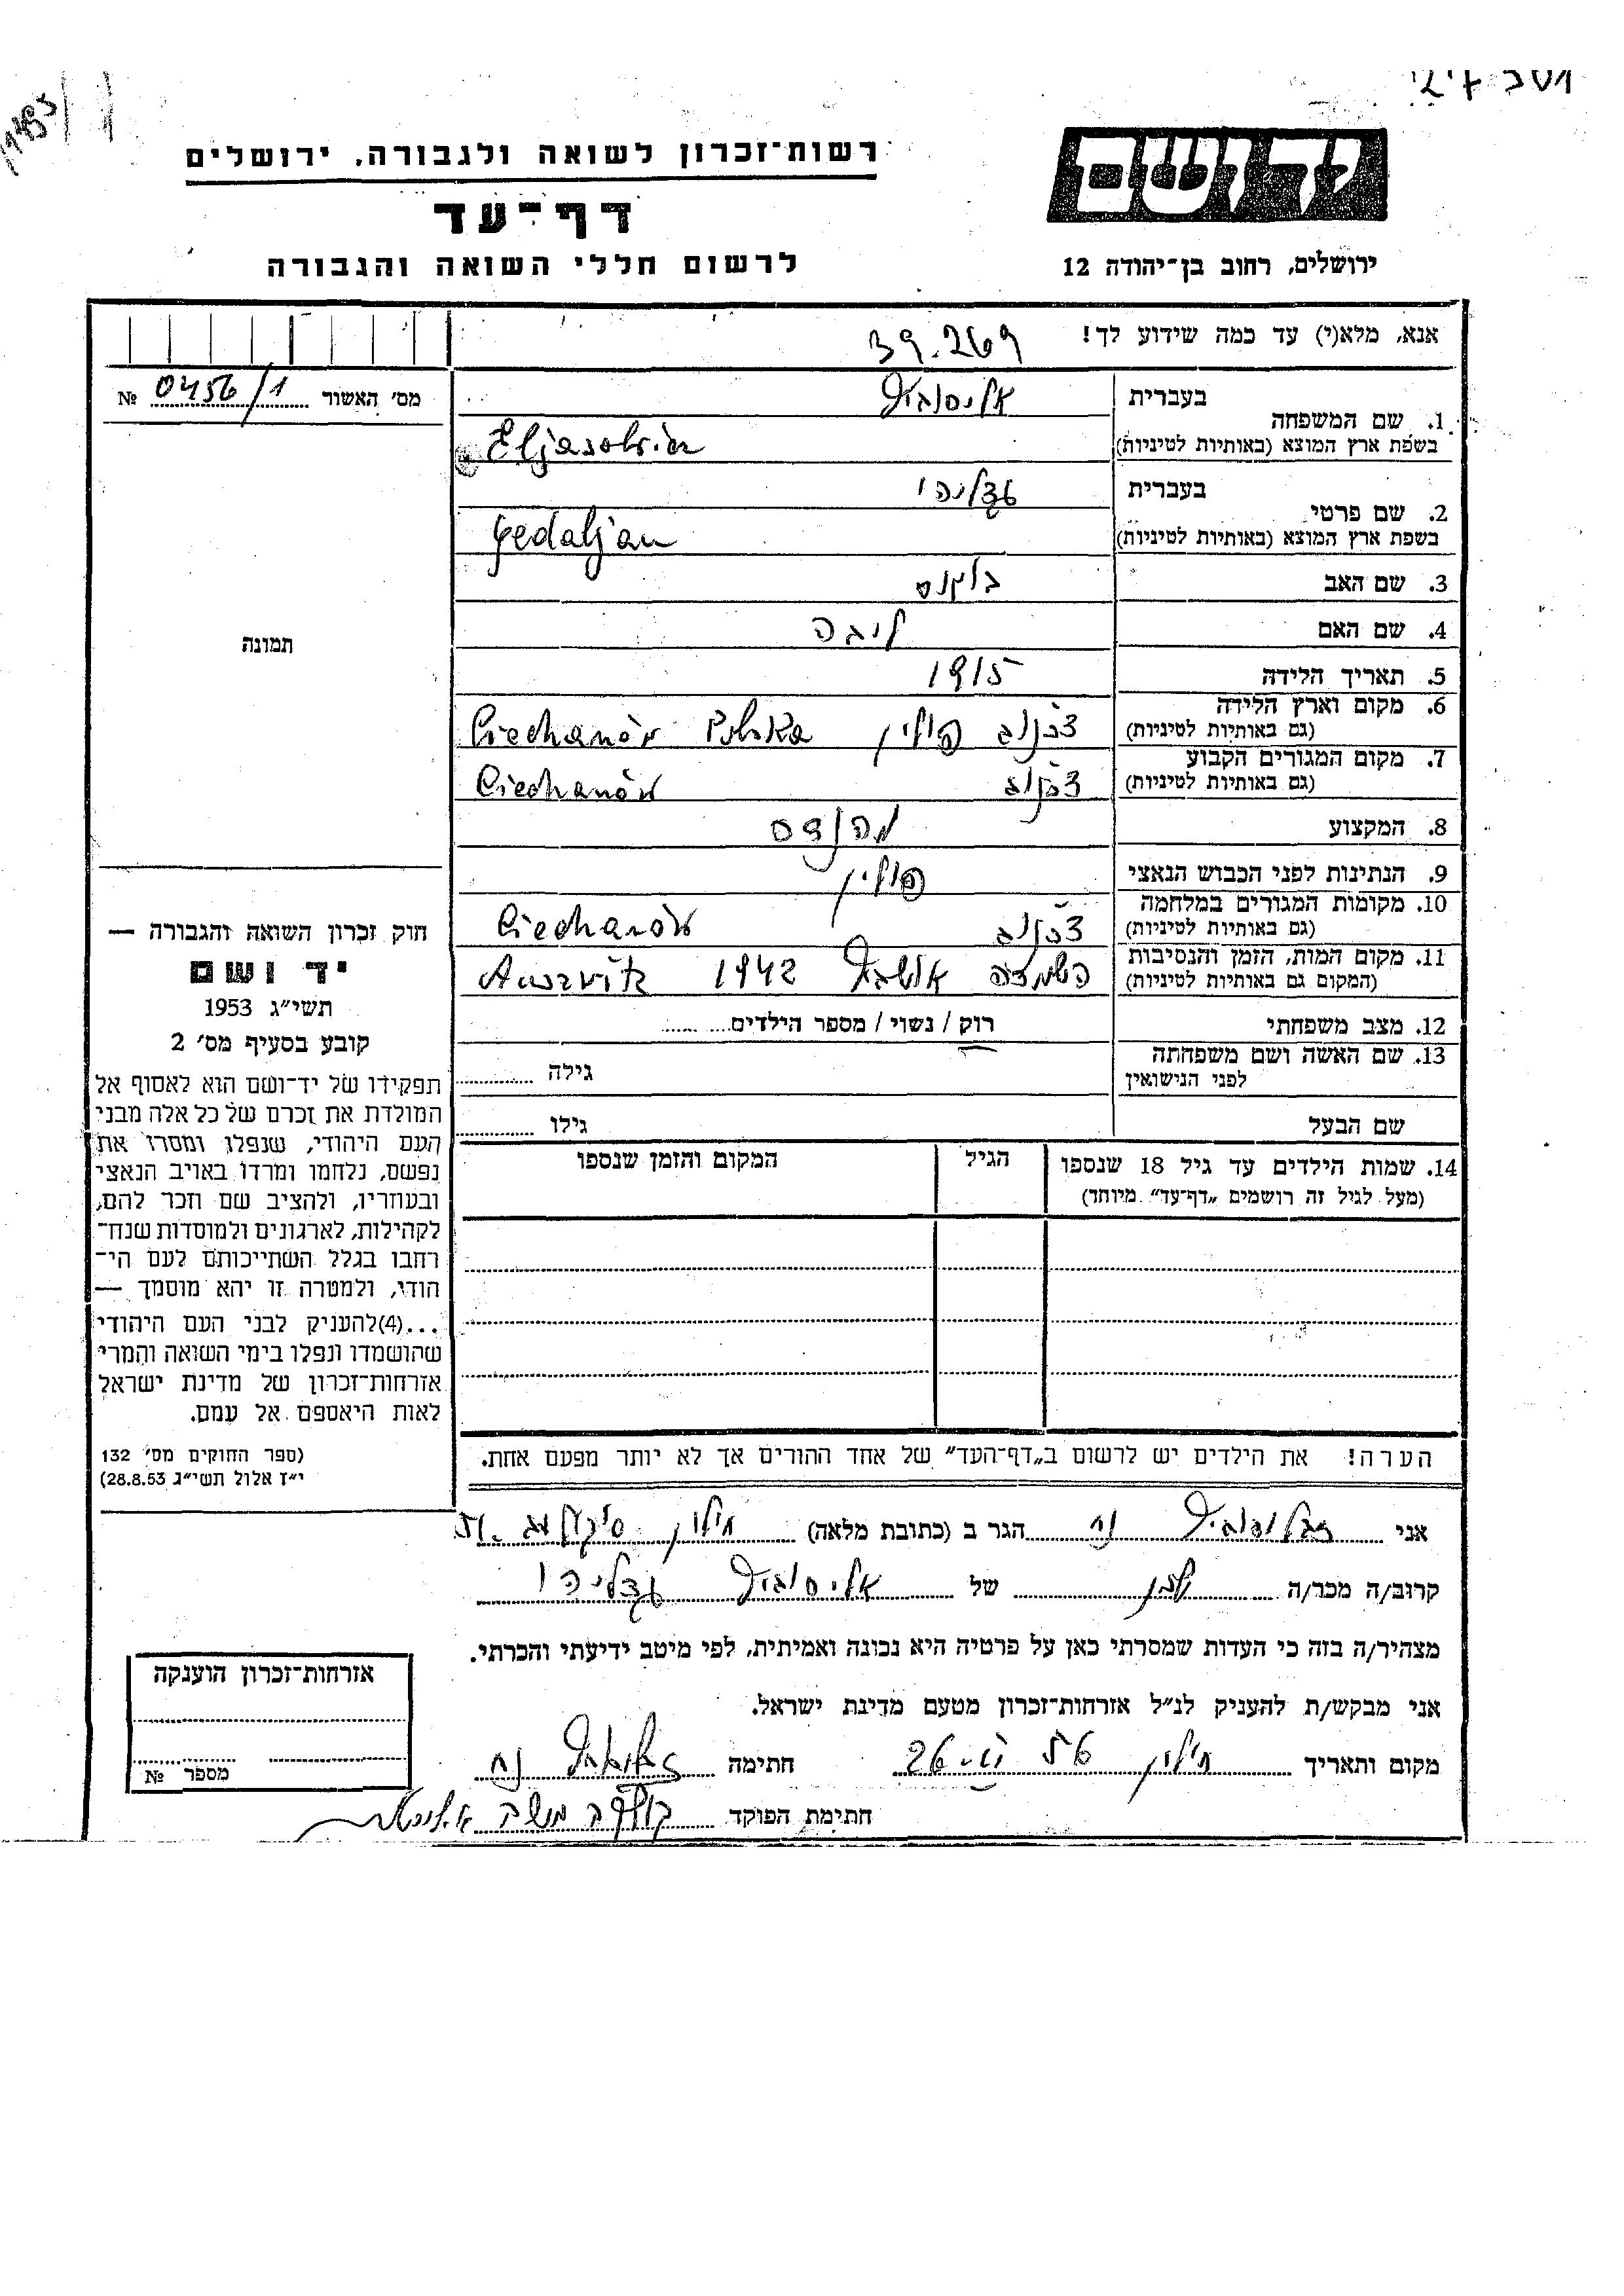 רשות־זכרון לשואה ולגבורה, ירושלים
דף־עד
לרשום חללי השואה והגבורה
ידושם
ירושלים, רחוב בן־יהודה 12
אנא, מלא(י) עד כמה שידוע לך!
39.269
מס׳ האשור № 0456/1
תמונה
1. שם המשפחה
בעברית אליסוביץ
בשפת ארץ המוצא (באותיות לטיניות)
2. שם פרטי
בעברית גדליהו
בשפת ארץ המוצא (באותיות לטיניות) Gedaljau
3. שם האב
4. שם האם ליבה
5. תאריך הלידה 1915
6. מקום וארץ הלידה
(גם באותיות לטיניות) צכנוב פולין Ciechanów Polska
7. מקום המגורים הקבוע
(גם באותיות לטיניות) צכנוב Ciechanów
8. המקצוע מהנדס
9. הנתינות לפני הכבוש הנאצי פולין
10. מקומות המגורים במלחמה
(גם באותיות לטיניות) צכנוב Ciechanów
11. מקום המות, הזמן והנסיבות
(המקום גם באותיות לטיניות) 1942
12. מצב משפחתי רוק / נשוי / מספר הילדים
13. שם האשה ושם משפחתה
לפני הנישואין גילה
שם הבעל גילו
14. שמות הילדים עד גיל 18 שנספו הגיל המקום והזמן שנספו
(מעל לגיל זה רושמים „דף־עד” מיוחד)
הערה! את הילדים יש לרשום ב„דף־העד” של אחד ההורים אך לא יותר מפעם אחת.
חוק זכרון השואה והגבורה —
יד ושם
תשי״ג 1953
קובע בסעיף מס׳ 2
תפקידו של יד־ושם הוא לאסוף אל
המולדת את זכרם של כל אלה מבני
העם היהודי, שנפלו ומסרו את
נפשם, נלחמו ומרדו באויב הנאצי
ובעוזריו, ולהציב שם וזכר להם,
לקהילות, לארגונים ולמוסדות שנח־
רחבו בגלל השתייכותם לעם הי־
הודי, ולמטרה זו יהא מוסמך —
...(4)להעניק לבני העם היהודי
שהושמדו ונפלו בימי השואה והמרי
אזרחות־זכרון של מדינת ישראל
לאות היאספם אל עמם.
(ספר החוקים מס׳ 132
י״ז אלול תשי״ג 28.8.53)
אני הגר ב (כתובת מלאה) חולון
קרוב/ה מכר/ה של אליסוביץ גדליהו
מצהיר/ה בזה כי העדות שמסרתי כאן על פרטיה היא נכונה ואמיתית, לפי מיטב ידיעתי והכרתי.
אני מבקש/ת להעניק לנ״ל אזרחות־זכרון מטעם מדינת ישראל.
מקום ותאריך חולון חתימה
חתימת הפוקד
אזרחות־זכרון הוענקה
מספר №